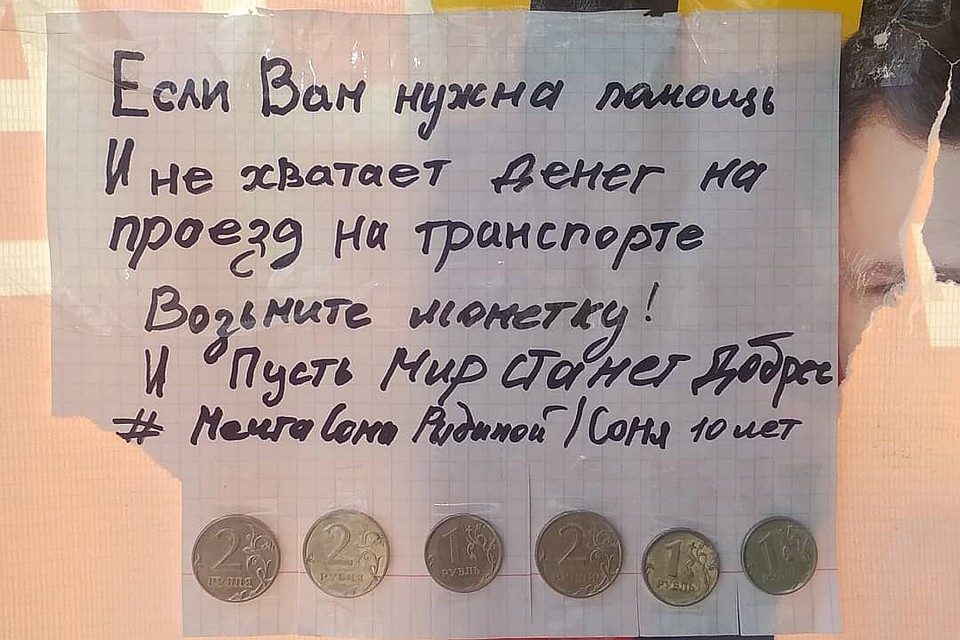 Если Вам нужна помощь
И не хватает денег на
проезд на транспорте
Возьмите монетку!
И Пусть Мир станет Добрее
# МечтаСони Рядиной / Соня 10 лет
2 РУБЛЯ 2 РУБЛЯ 1 РУБЛЬ 2 РУБЛЯ 1 РУБЛЬ 1 РУБЛЬ